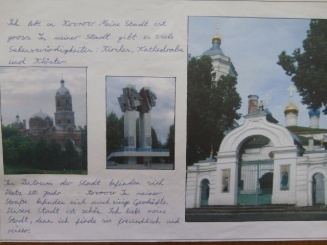 Ich lebe in Kovrov Meine Stadt ist
gross In meiner Stadt gibt es viele
Sehenswürdigkeiten: Kirchen, Kathedralen
und Klöster.
Im Zentrum der Stadt befinden sich
Platz 200 Jahr Kovrov In meiner
Straße befinden sich auch einige Geschäfte.
Unsere Stadt ist schön. Ich liebe meine
Stadt, denn ich finde sie freundlich und